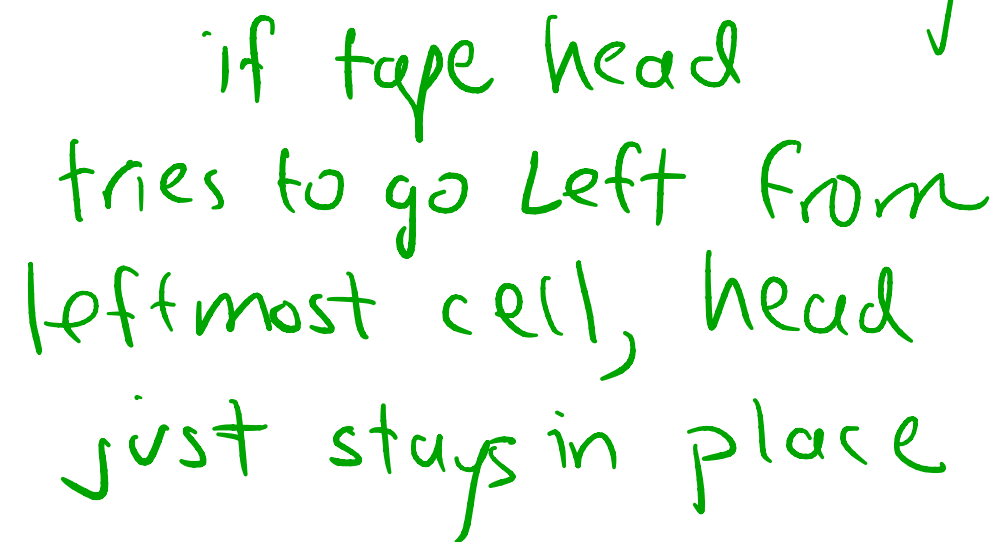 if tape head
tries to go Left from
leftmost cell, head
just stays in place